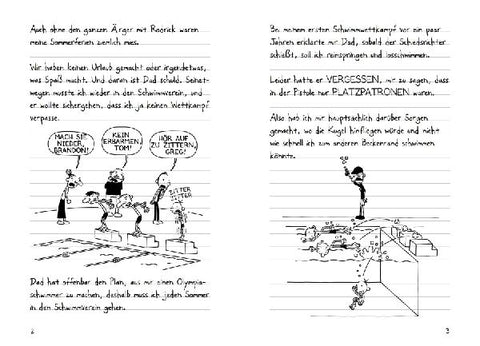 Auch ohne den ganzen Ärger mit Rodrick waren
meine Sommerferien ziemlich mies.
Wir haben keinen Urlaub gemacht oder irgendetwas,
was Spaß macht. Und daran ist Dad schuld. Seinet-
wegen musste ich wieder in den Schwimmverein, und
er wollte sichergehen, dass ich ja keinen Wettkampf
verpasse.
MACH SIE
NIEDER,
BRANDON!
KEIN
ERBARMEN,
TOM!
HÖR AUF
ZU ZITTERN,
GREG!
ZITTER
ZITTER
Dad hat offenbar den Plan, aus mir einen Olympia-
schwimmer zu machen, deshalb muss ich jeden Sommer
in den Schwimmverein gehen.
2
Bei meinem ersten Schwimmwettkampf vor ein paar
Jahren erklärte mir Dad, sobald der Schiedsrichter
schießt, soll ich reinspringen und losschwimmen.
Leider hatte er VERGESSEN, mir zu sagen, dass
in der Pistole nur PLATZPATRONEN waren.
Also hab ich mir hauptsächlich darüber Sorgen
gemacht, wo die Kugel hinfliegen würde und nicht
wie schnell ich zum anderen Beckenrand schwimmen
könnte.
3